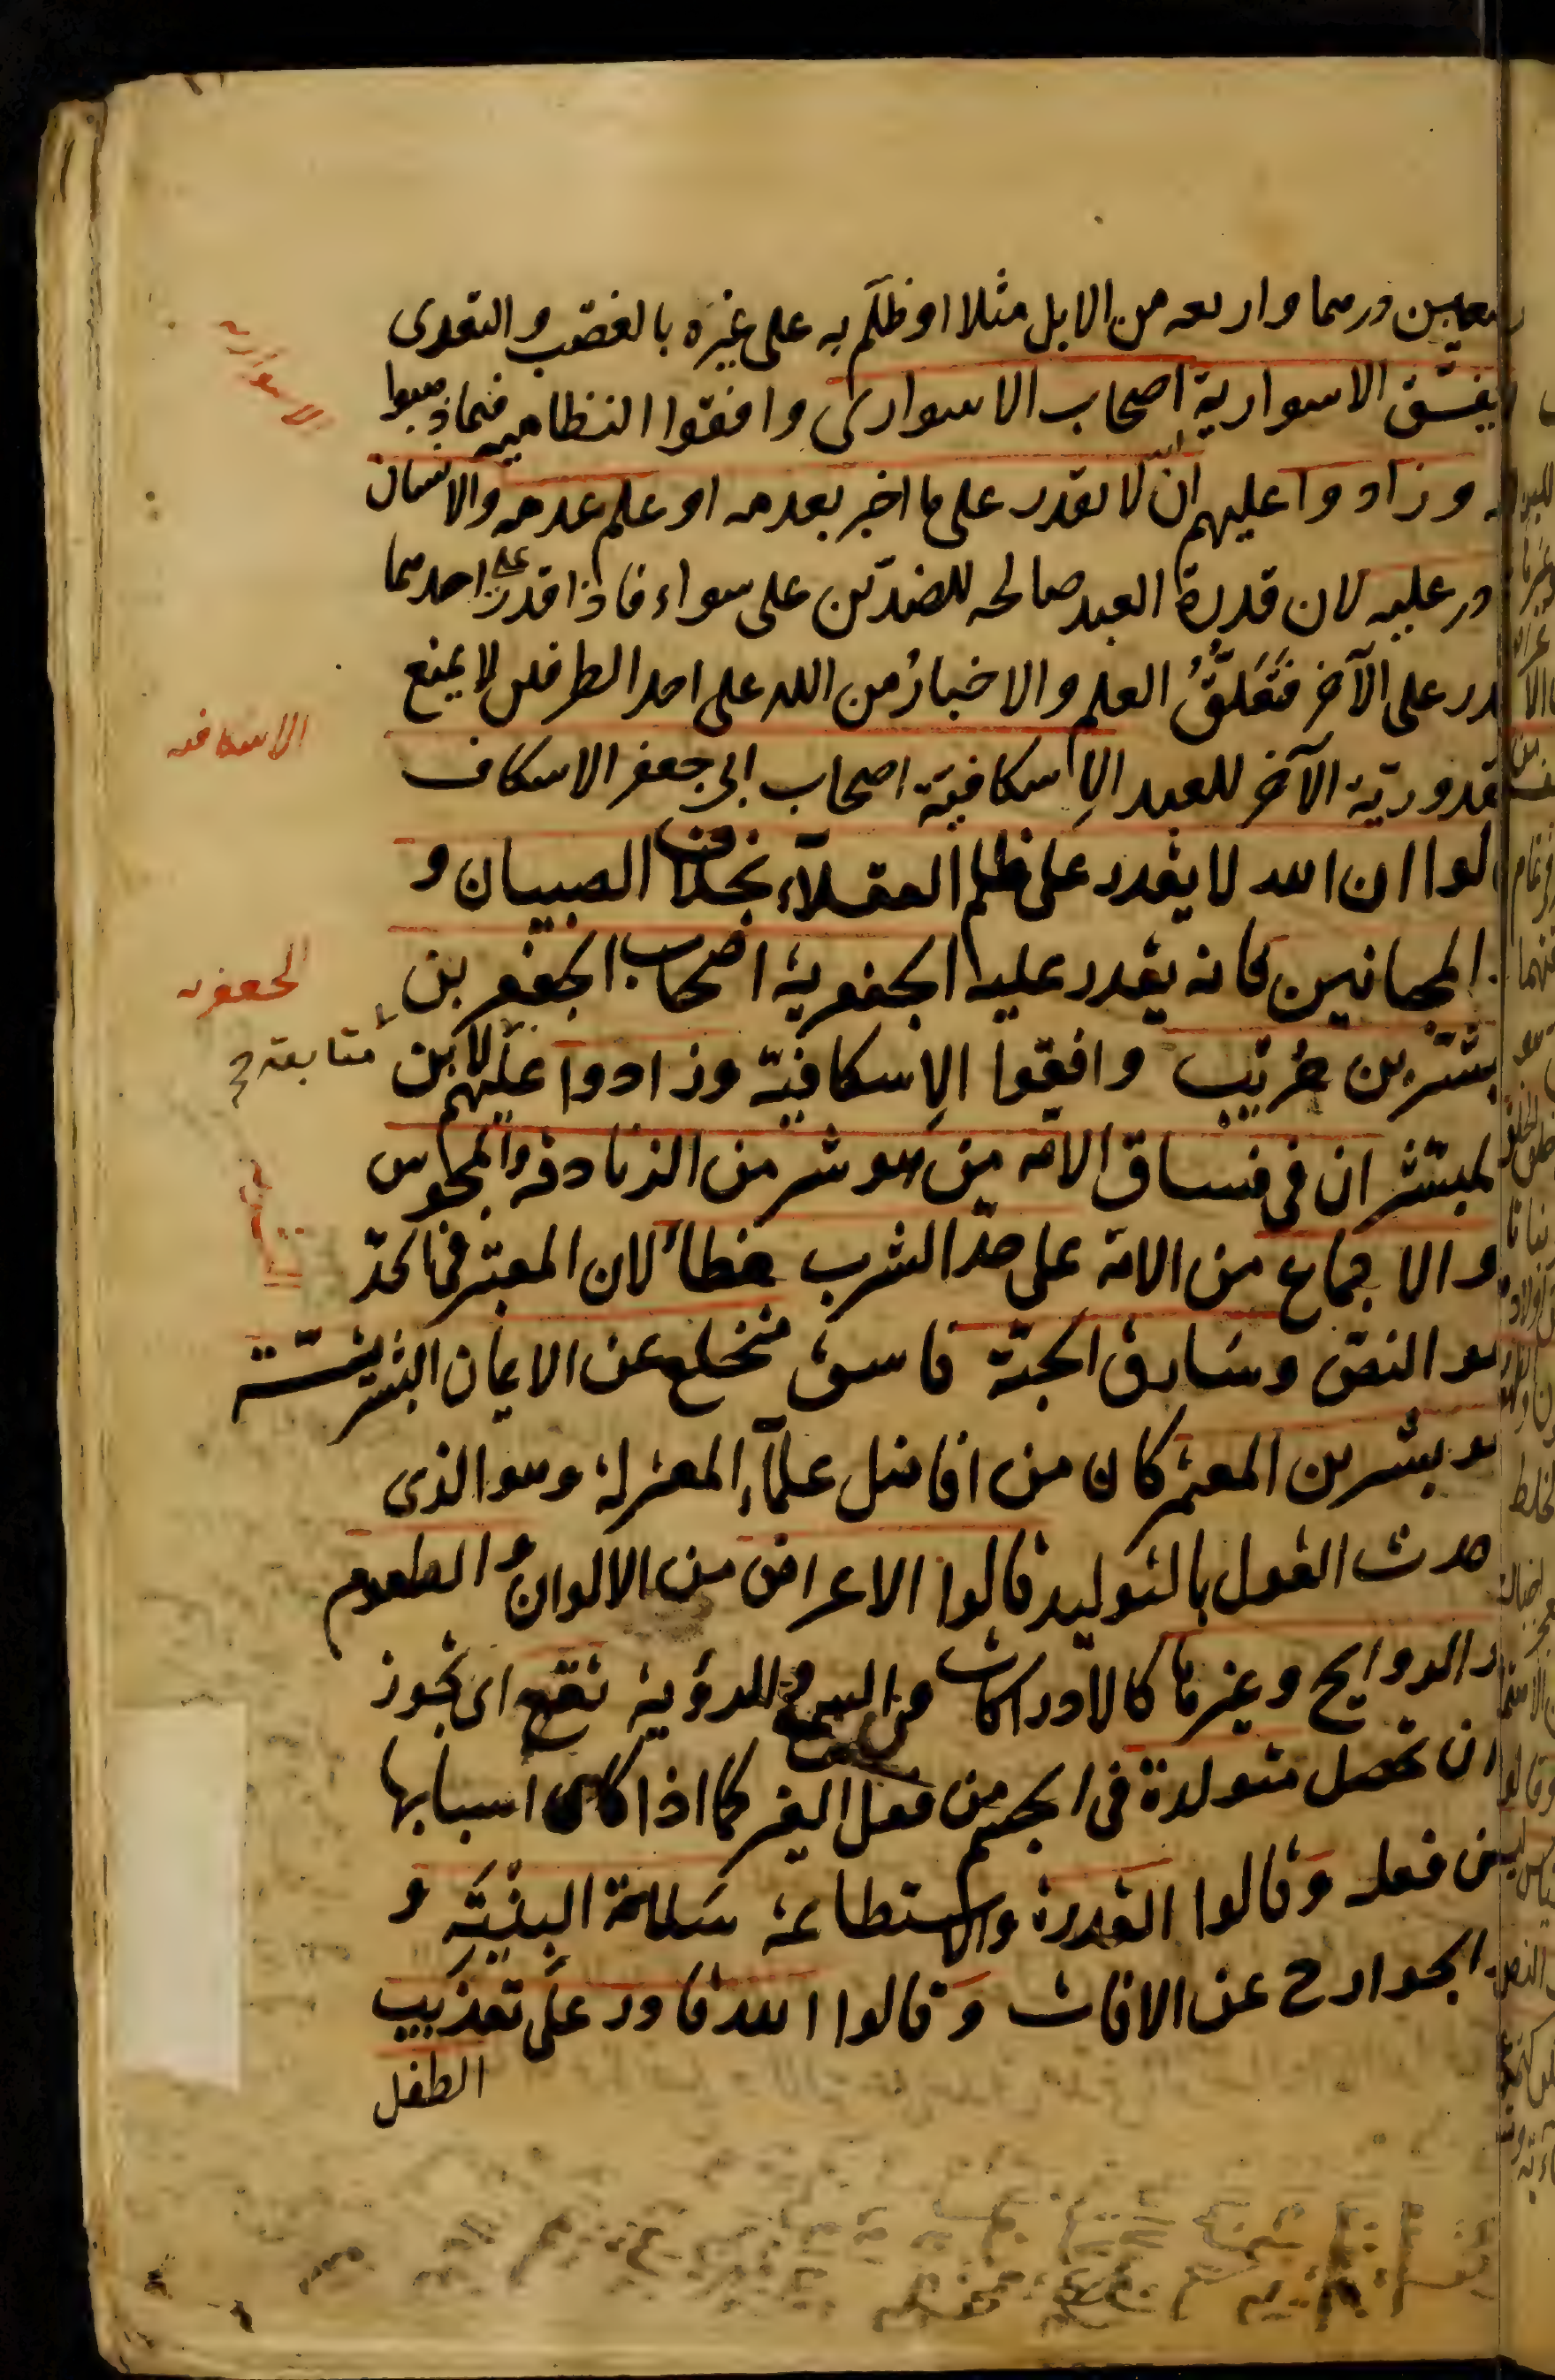 تسعين درهما واربعة من الابل مثلا او ظلم به على غيره بالغصب والتعدى
يفسق الاسوارية اصحاب الاسوارى وافقوا النظامية فيما ذهبوا
الاسوارية
وزادوا عليهم ان الله لا يقدر على ما اخبر بعدمه او علم عدمه والانسان
در عليه لان قدرة العبد صالحه للضدين على سواء فاذا قدر على احدهما
در على الآخر فتعلق العلم والاخبار من الله على احد الطرفين لا يمنع
قدورية الآخر للعبد الاسكافية اصحاب ابى جعفر الاسكاف
الاسكافيه
لوا ان الله لا يقدر على ظلم العقلاء بخلاف الصبيان و
المجانين فانه يقدر عليه الجعفرية اصحاب الجعفر بن
الجعفريه
بشر بن حرب وافقوا الاسكافية وزادوا عليهم لابن
متابعة
لمبشر ان فى فساق الامه من هو شر من الزنادقه والمجوس
والاجماع من الامة على حد الشرب خطأ لان المعتبر فى الحد
هو النص وسارق الحبة فاسق منخلع عن الايمان البشرية
هو بشر بن المعتمر كان من افاضل علماء المعتزلة وهو الذى
حدث القول بالتوليد قالوا الاعراض من الالوان والطعوم
والروايح وغيرها كالادراكات من السمع والرؤية تقع اى يجوز
ان تحصل متولدة فى الجسم من فعل الغير كما اذا كان اسبابها
من فعله وقالوا القدرة والاستطاعة سلامة البنية و
الجوارح عن الافات وقالوا الله قادر على تعذيب
الطفل